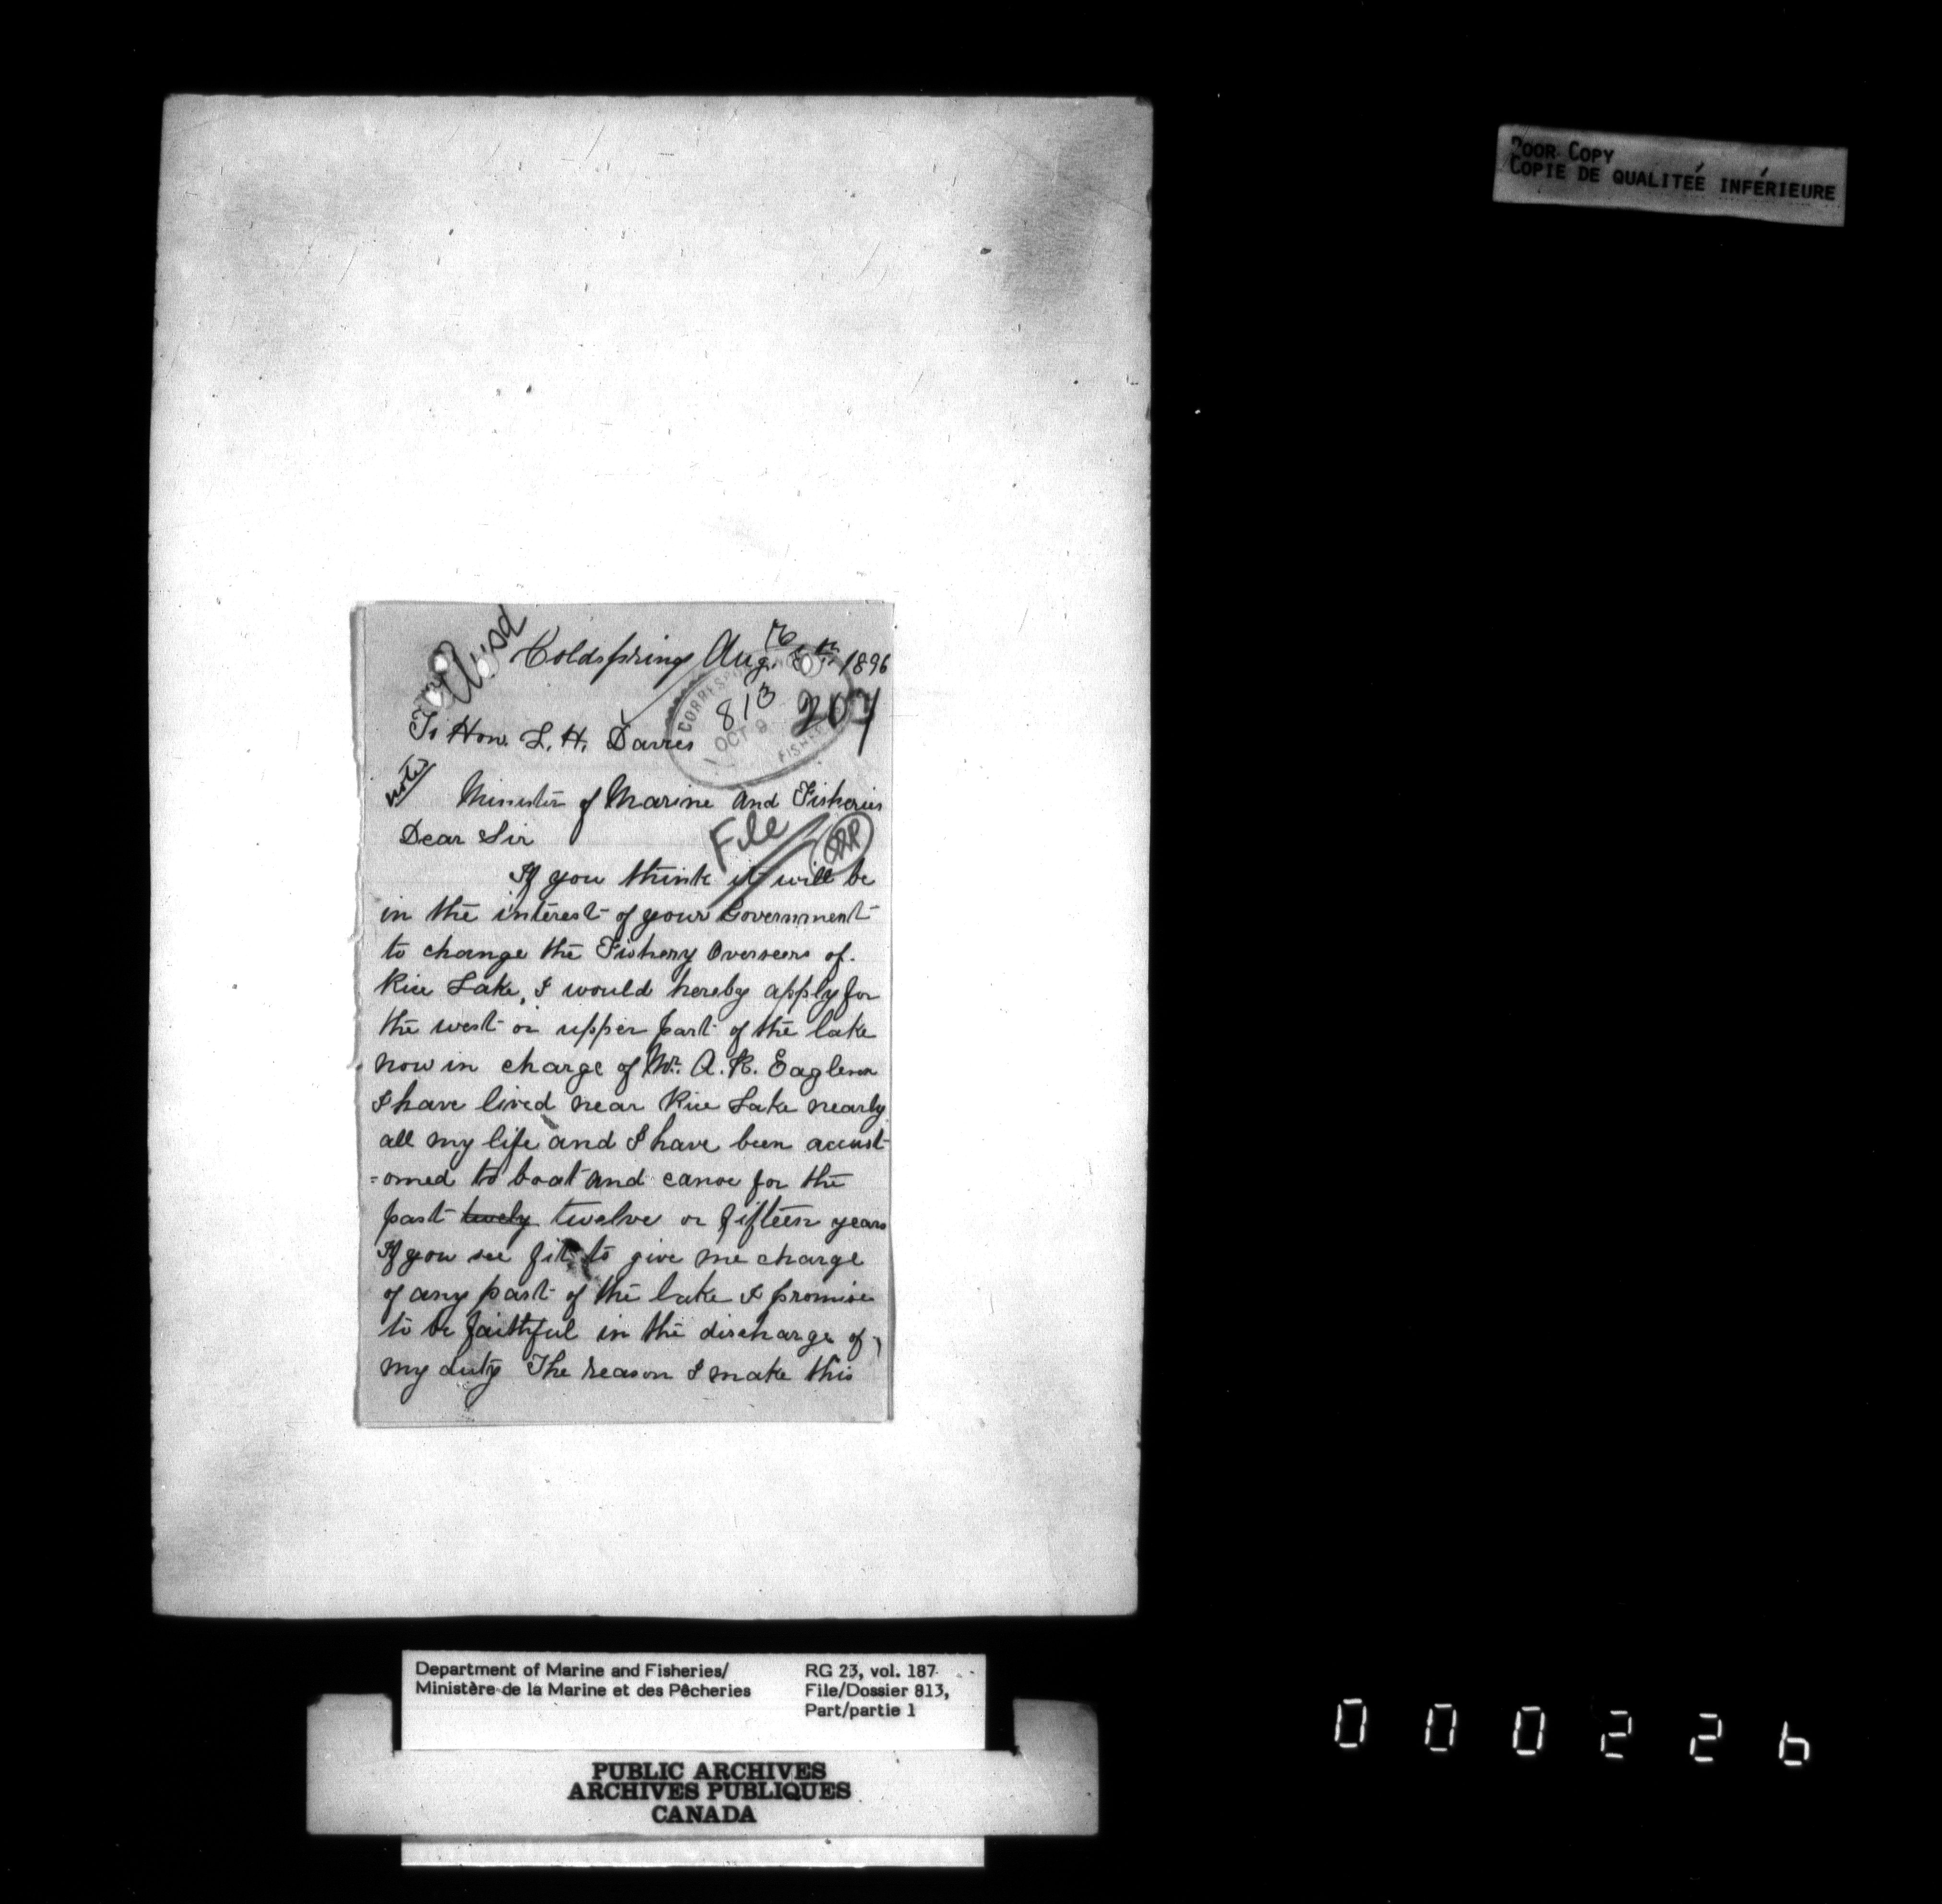 POOR COPY
COPIE DE QUALITEÉ INFÉRIEURE
Coldsprings Aug. 1896
CORRESPONDENCE
813
207
OCT 9
FISHERIES
To Hon. L. H. Davies
Minister of Marine and Fisheries
File
Dear Sir
If you think it will be
in the interest of your Government
to change the Fishery Overseers of
Rice Lake, I would hereby apply for
the west or upper part of the lake
now in charge of Mr. A. R. Eagleson
I have lived near Rice Lake nearly
all my life and I have been accust-
=omed to boat and canoe for the
past twelve or fifteen years
If you see fit to give me charge
of any part of the lake I promise
to be faithful in the discharge of
my duty The reason I make this
Department of Marine and Fisheries/
Ministère de la Marine et des Pêcheries
RG 23, vol. 187
File/Dossier 813,
Part/partie 1
PUBLIC ARCHIVES
ARCHIVES PUBLIQUES
CANADA
000226